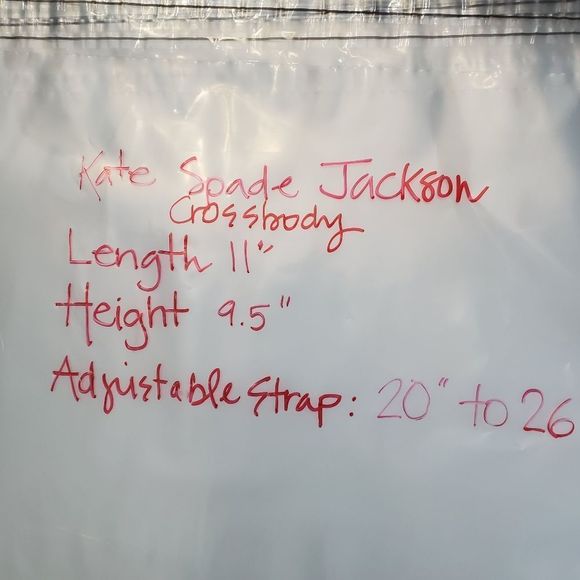 Kate Spade Jackson
Crossbody
Length 11"
Height 9.5"
Adjustable Strap: 20" to 26